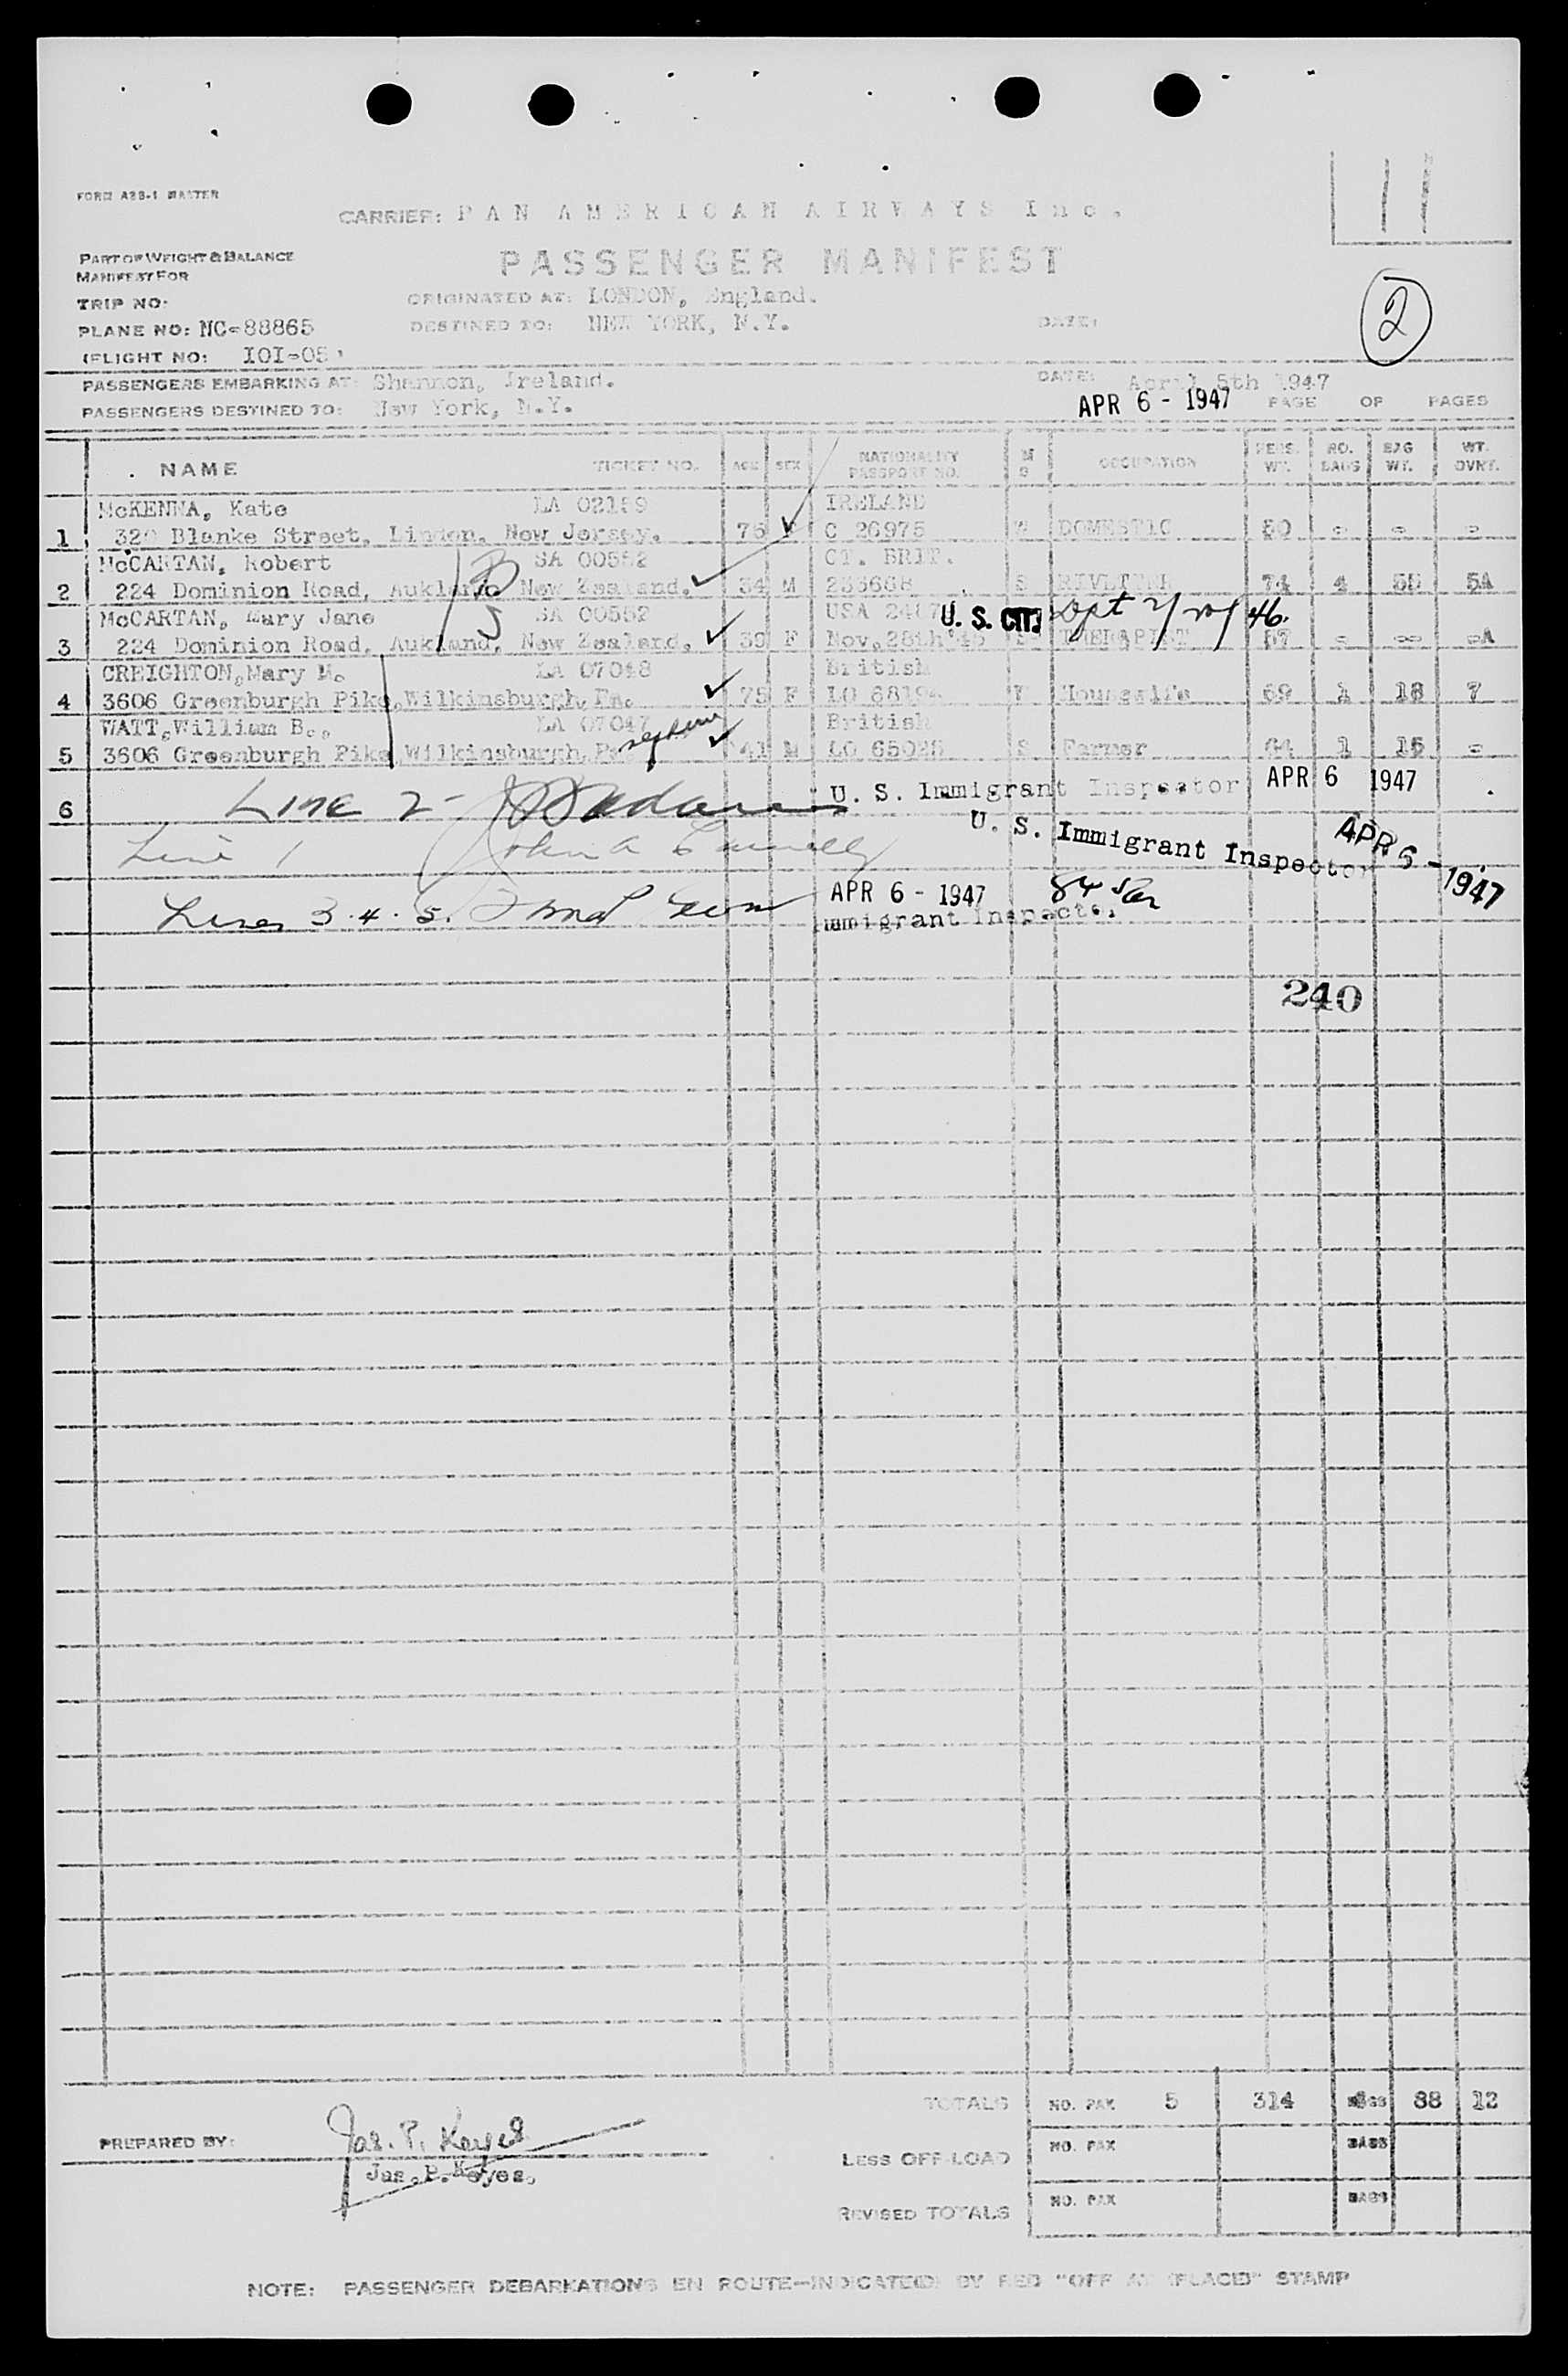 FORM A28-1 MASTER
CARRIER: PAN AMERICAN AIRWAYS Inc.
11
PART OF WEIGHT & BALANCE
MANIFEST FOR
PASSENGER MANIFEST
TRIP NO:
ORIGINATED AT: LONDON, England.
PLANE NO: NC-88865
DESTINED TO: NEW YORK, N.Y.
DATE:
2
FLIGHT NO: IOI-05
PASSENGERS EMBARKING AT: Shannon, Ireland.
DATE: April 5th 1947
PASSENGERS DESTINED TO: New York, N.Y.
APR 6 - 1947 PAGE OF PAGES
NAME TICKET NO. AGE SEX NATIONALITY PASSPORT NO. M S OCCUPATION PERS. WT. NO. BAGS BAG WT. WT. OVRT.
McKENNA, Kate LA 02159 IRELAND
1 320 Blanke Street, Linden, New Jersey. 75 F C 26975 W DOMESTIC 50 - - -
McCARTAN, Robert SA 00552 CT. BRIT.
2 224 Dominion Road, Aukland, New Zealand. 34 M 233668 S RIVETTER 74 4 55 5A
McCARTAN, Mary Jane SA 00552 USA U. S. CIT. 46.
3 224 Dominion Road, Aukland, New Zealand. 39 F Nov. 28th '45 S THERAPIST 57 - - -A
CREIGHTON, Mary M. LA 07048 British
4 3606 Greenburgh Pike, Wilkinsburgh, Pa. 75 F LO 6819 Housewife 69 1 18 7
WATT, William B., LA 07047 British
5 3606 Greenburgh Pike, Wilkinsburgh, Pa. 41 M LO 65025 S Farmer 64 1 15 -
6 Line 2 - U. S. Immigrant Inspector APR 6 1947
Line 1 John A U. S. Immigrant Inspector APR 6 - 1947
Lines 3. 4. 5. APR 6 - 1947
Immigrant Inspector
240
TOTALS NO. PAX 5 314 BAGS 88 12
PREPARED BY: Jas. P. Keyes
Jas. P. Keyes.
LESS OFF-LOAD NO. PAX BAGS
REVISED TOTALS NO. PAX BAGS
NOTE: PASSENGER DEBARKATIONS EN ROUTE-INDICATED BY RED "OFF AT (PLACE)" STAMP